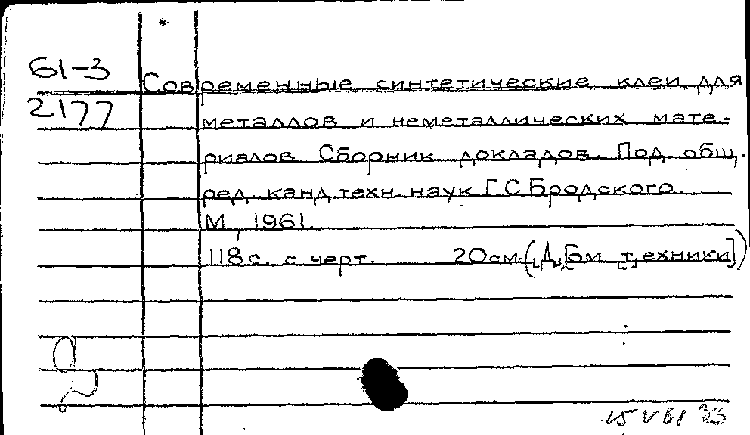 61-3
Современные синтетические клеи для
2177
металлов и неметаллических мате-
риалов. Сборник докладов. Под общ.
ред. канд. техн. наук Г.С. Бродского.
М., 1961.
118 с. с черт. 20 см. техники])
15 V 61